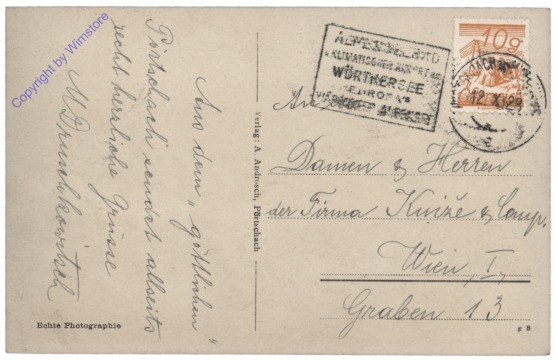 Copyright by Wimstore
Aus dem "göttlichen"
Pörtschach sendet allseits
recht herzliche Grüsse
M Druschkowitsch
Echte Photographie
Verlag: A. Androsch, Pörtschach
KLIMATISCHER
WÖRTHERSEE
EUROPAS
10g
12.X.29
An
Damen & Herren
der Firma Kniže & Comp.
Wien, I,
Graben 13
g 8